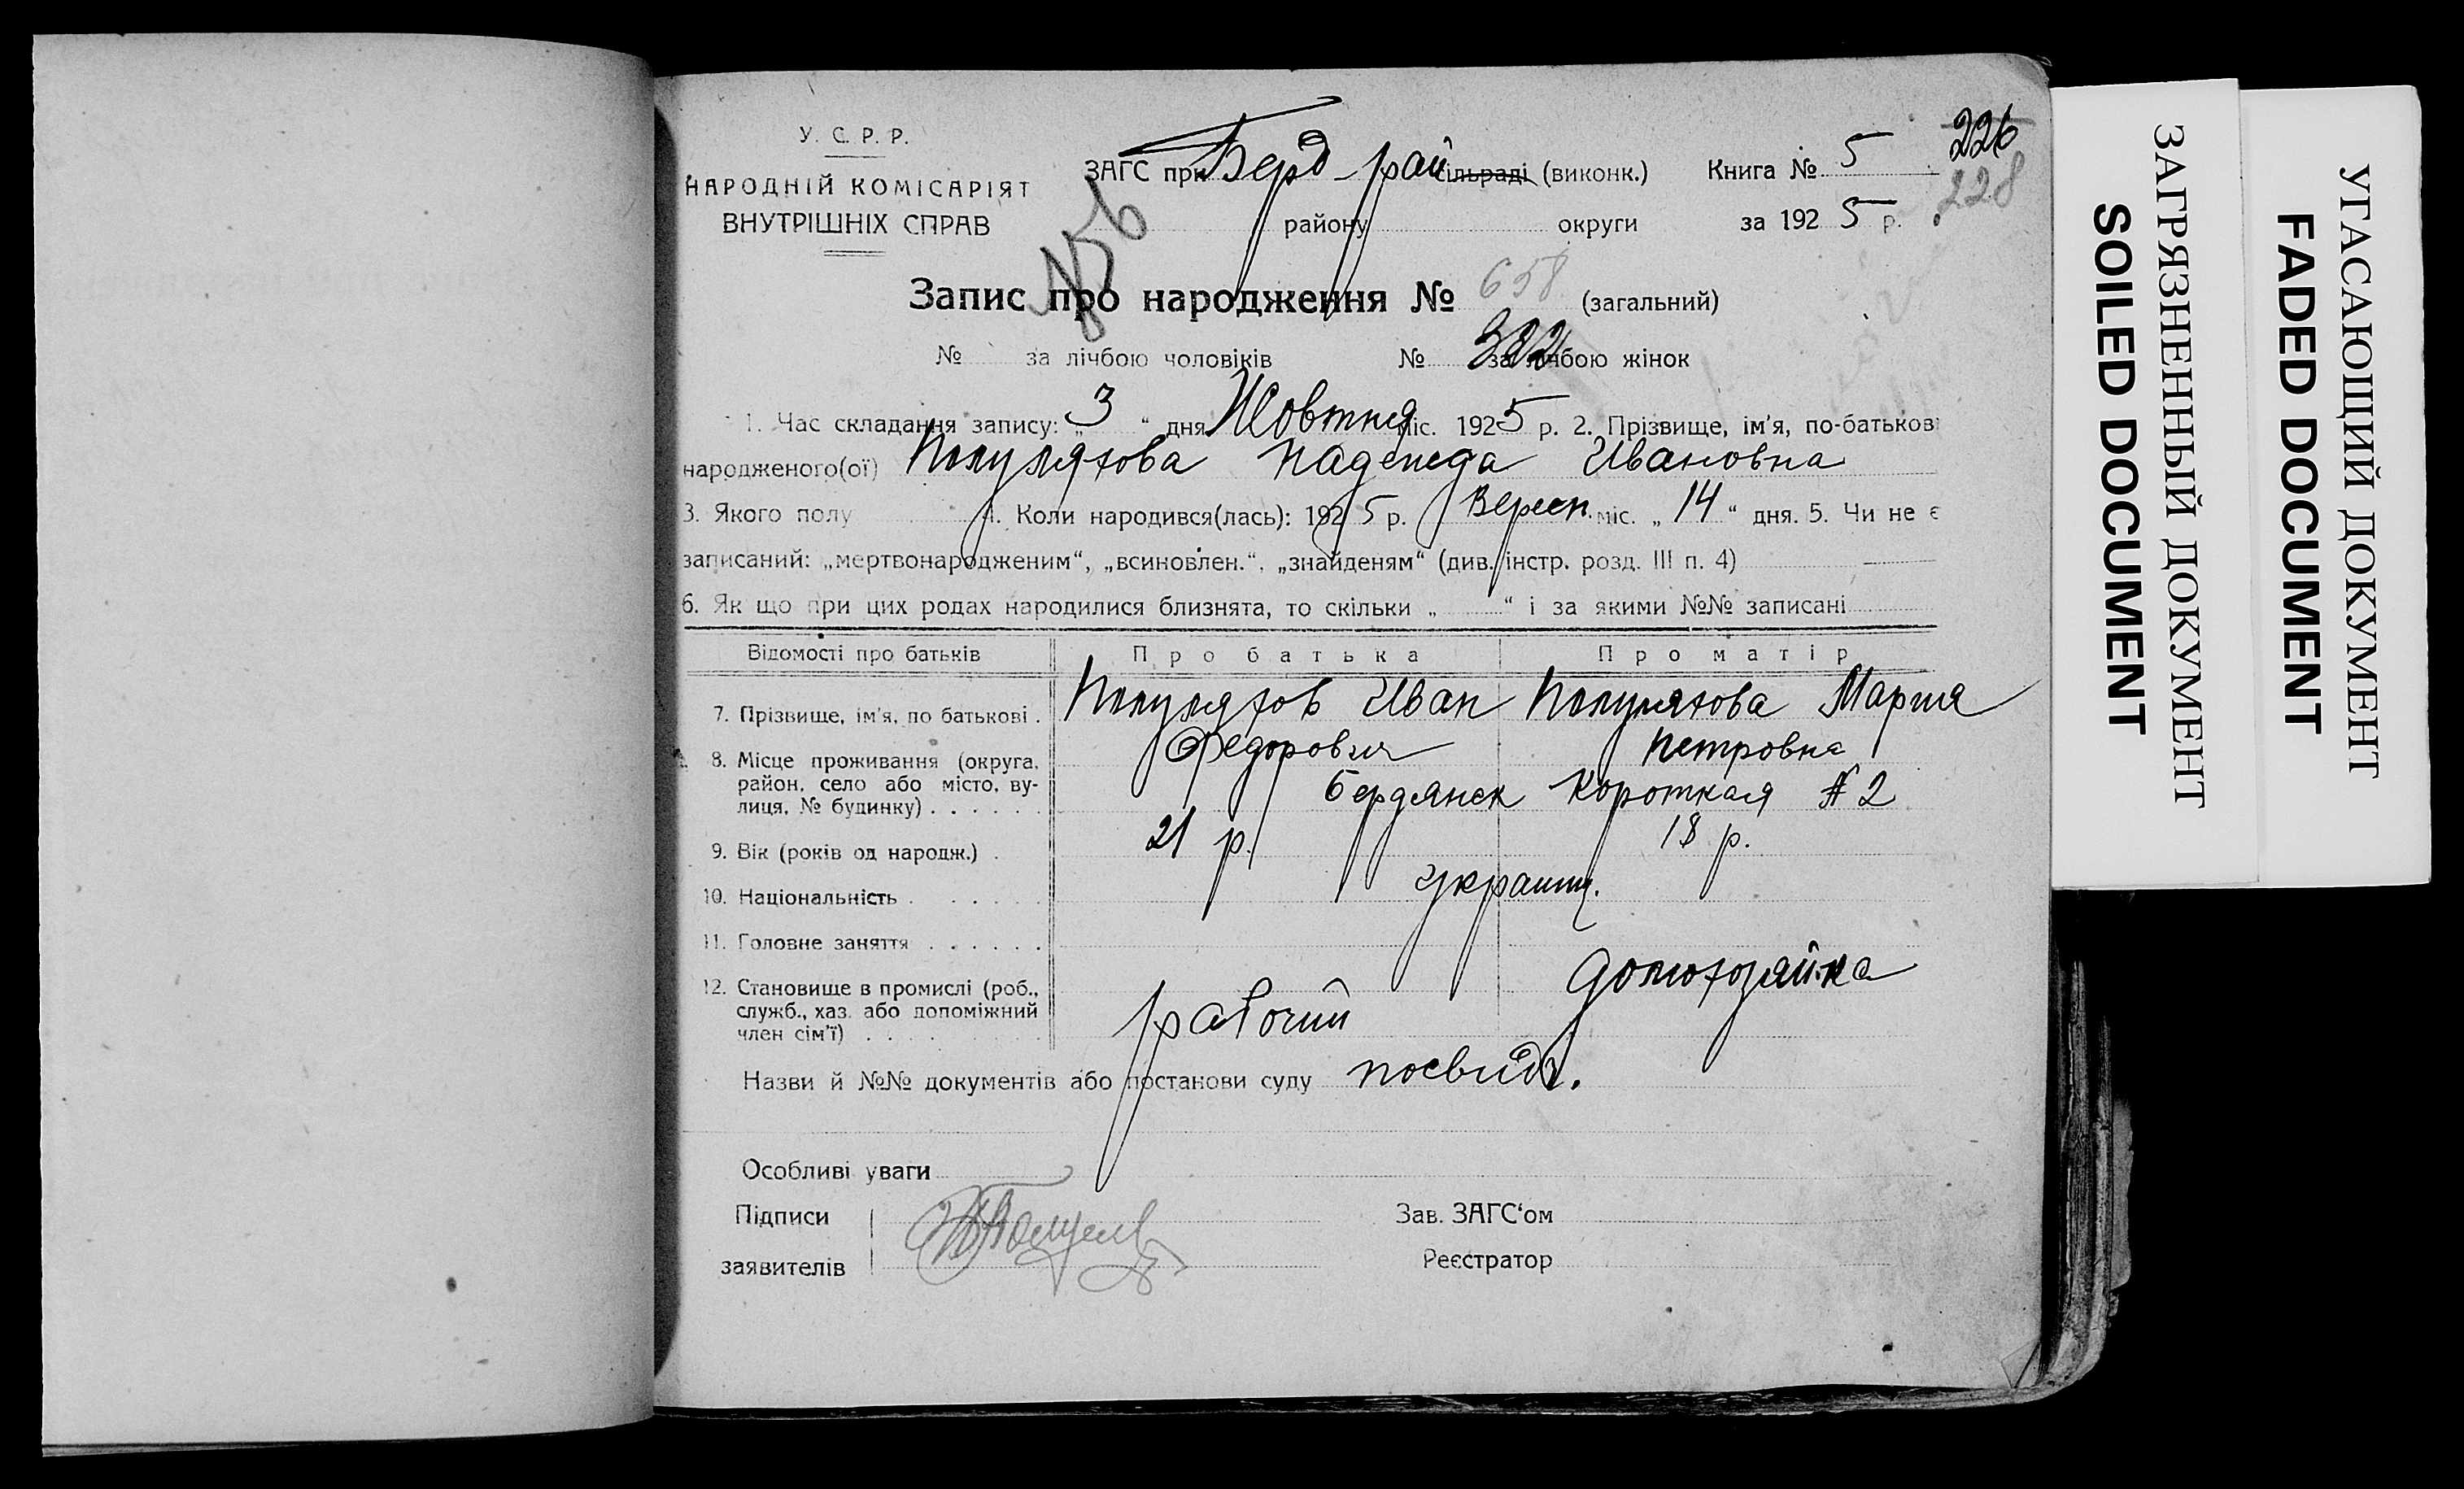 У. С. Р. Р.
НАРОДНІЙ КОМІСАРІЯТ
ВНУТРІШНІХ СПРАВ
ЗАГС при Берд рай сільраді (виконк.)
району округи
Книга № 5
за 1925 р.
226
228
Запис про народження № 658 (загальний)
№ за лічбою чоловіків № 322 за лічбою жінок
1. Час складання запису: „3“ дня Жовтня міс. 1925 р. 2. Прізвище, ім'я, по-батькові
народженого(ої) Полуляхова Надежда Ивановна
3. Якого полу 4. Коли народився(лась): 1925 р. Вересн. міс. „14“ дня. 5. Чи не є
записаний: „мертвонародженим“, „всиновлен.“, „знайденям“ (див. інстр. розд. III п. 4)
6. Як що при цих родах народилися близнята, то скільки „ “ і за якими №№ записані
Відомості про батьків Про батька Про матір
7. Прізвище, ім'я, по батькові . Полуляхов Иван Полуляхова Мария
Федорович Петровна
8. Місце проживання (округа,
район, село або місто, ву-
лиця, № будинку) . . . . . . Бердянск Короткая № 2
9. Вік (років од народж.) . 21 р. 18 р.
10. Національність . . . . . . украинц.
11. Головне заняття . . . . . .
домохозяйка
12. Становище в промислі (роб.,
служб., хаз. або допоміжний
член сім'ї) . . рабочий
Назви й №№ документів або постанови суду посвид.
Особливі уваги
Підписи
заявителів
Зав. ЗАГС‘ом
Реєстратор
ЗАГРЯЗНЕННЫЙ ДОКУМЕНТ
SOILED DOCUMENT
УГАСАЮЩИЙ ДОКУМЕНТ
FADED DOCUMENT